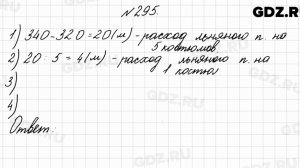 GDZ.RU
№295.
1) 340-320=20(м) - расход льняного п. на
5 костюмов
2) 20 : 5 = 4(м) - расход льняного п. на
1 костюм
3)
4)
Ответ:
GDZ.RU